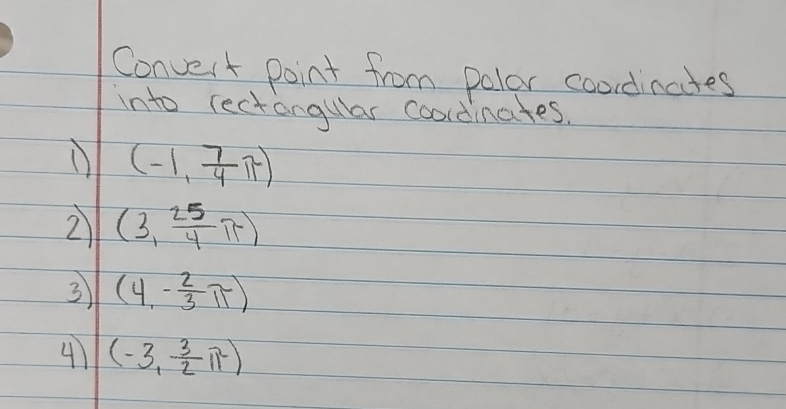 Convert point from polar coordinates
into rectangular coordinates.
1) (-1, 7/4 π)
2) (3, 25/4 π)
3) (4, -2/3 π)
4) (-3, 3/2 π)